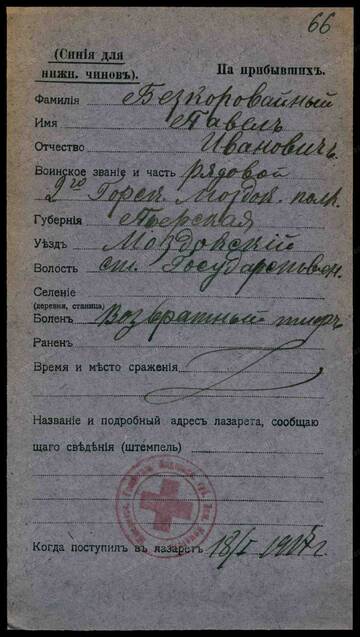 66
(Синія для
нижн. чиновъ).
На прибывшихъ.
Фамилія Безкоровайный
Имя Павелъ
Отчество Ивановичъ
Воинское званіе и часть рядовой
2го Горск. Моздок. полк.
Губернія Терская
Уѣздъ Моздокскій
Волость ст. Государствен.
Селеніе
(деревня, станица)
Боленъ Возвратный тифъ
Раненъ
Время и мѣсто сраженія
Названіе и подробный адресъ лазарета, сообщаю
щаго свѣдѣнія (штемпель)
Когда поступилъ въ лазаретъ 18/I 1917 г.